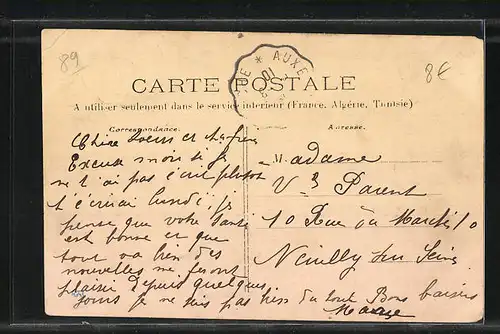 89
8€
* AUXE
CARTE POSTALE
A utiliser seulement dans le service intérieur (France, Algérie, Tunisie)
Correspondance.
Adresse.
Chère Soeur et
Excuse moi si je
ne t'ai pas écrit plutot
t'écrirai lundi, je
pense que votre santé
est bonne et que
tout va bien des
nouvelles me feront
plaisir depuis quelques
jours je ne sais pas bien du tout Bons baisers
Madame
Vve Parent
10 Rue du Marché 10
Neuilly sur Seine